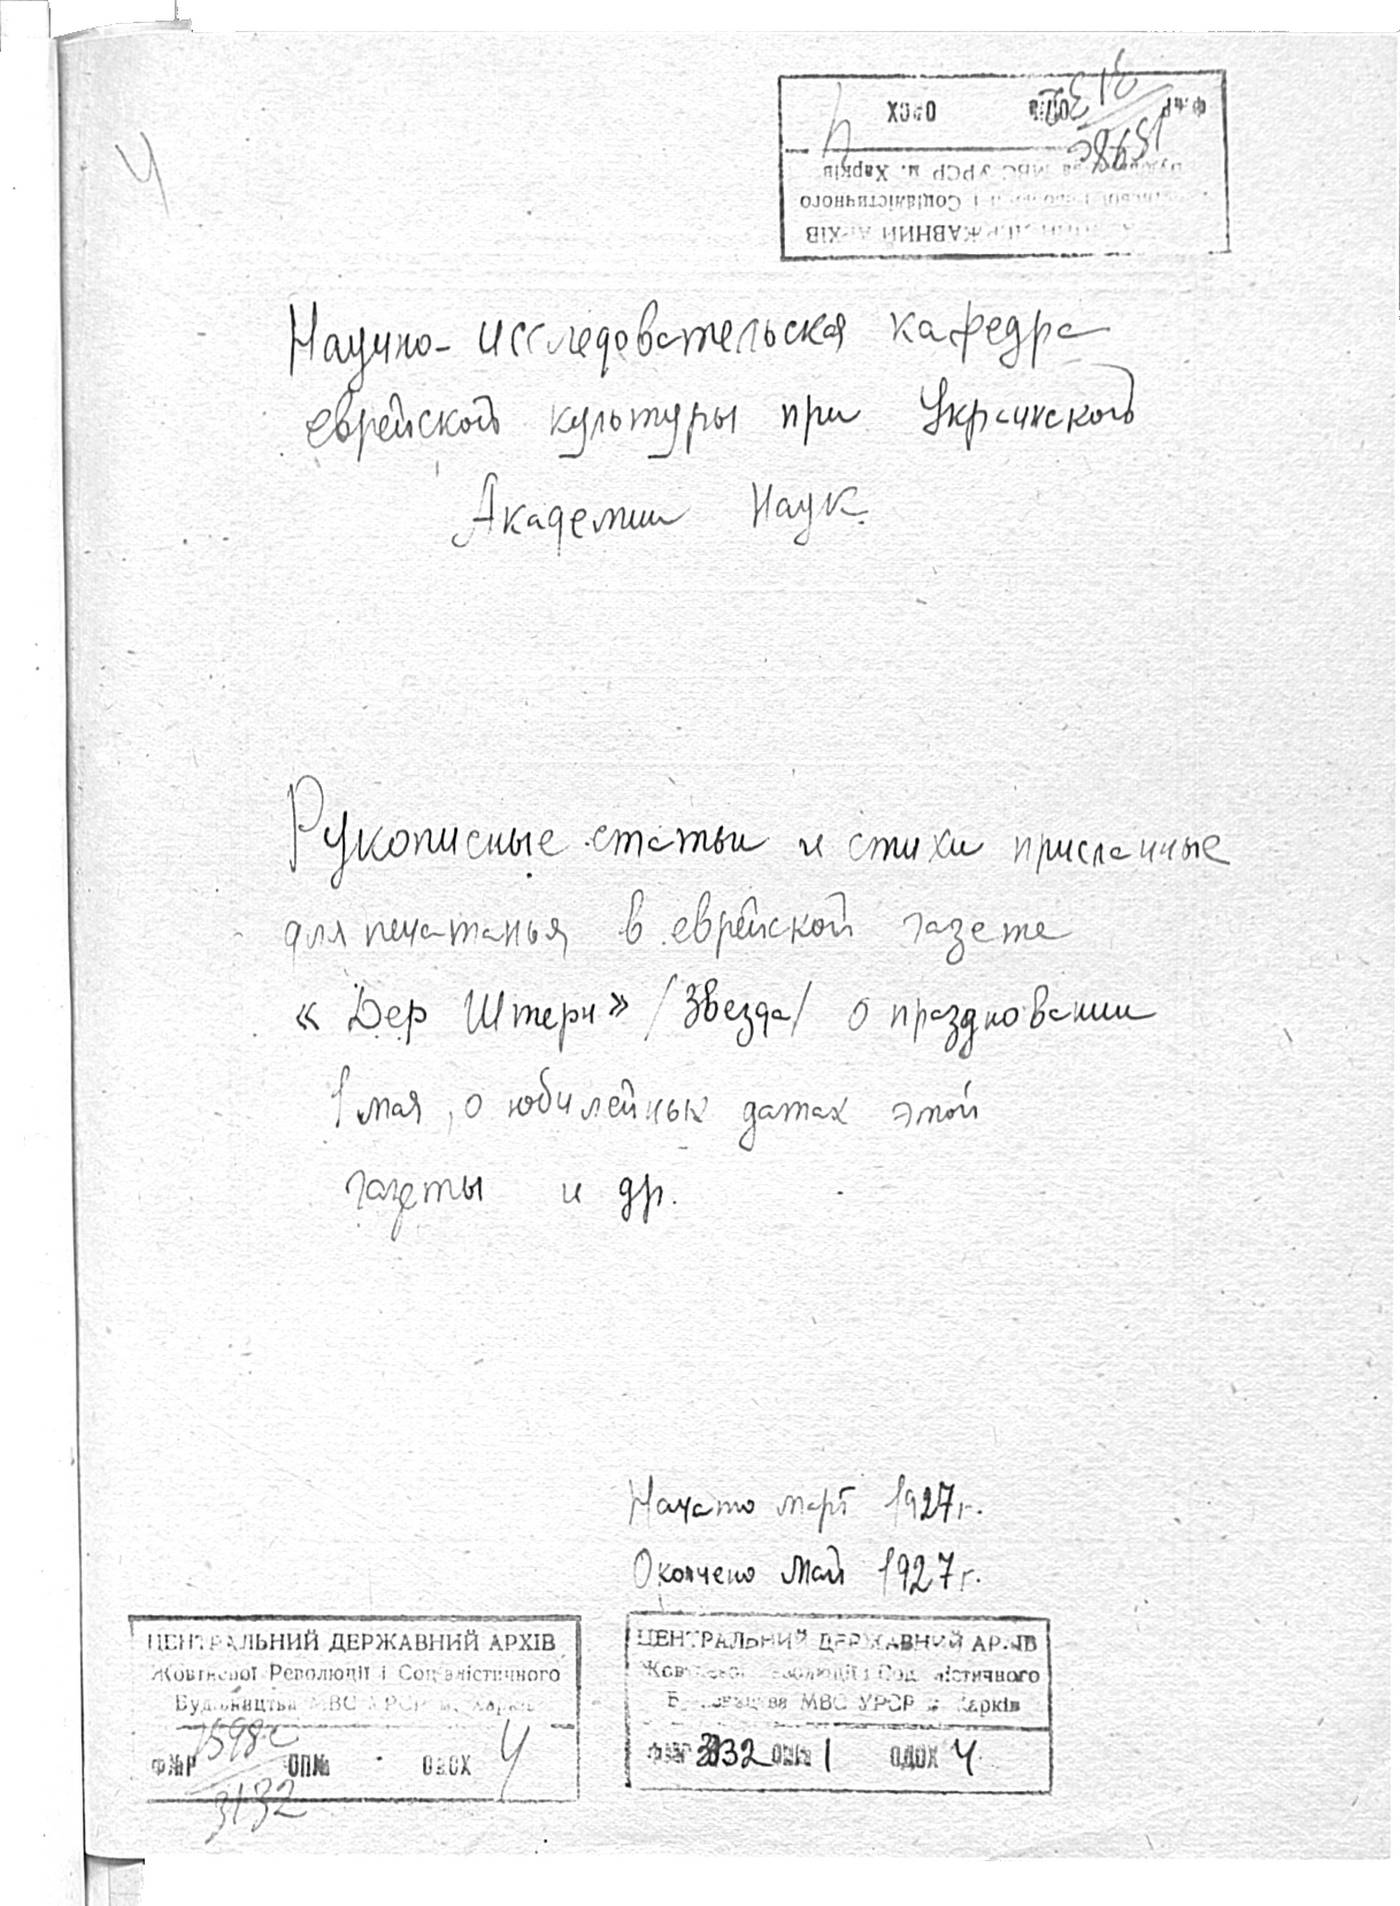 4
Ф№Р 1598с 3132 ОП№ ОДСХ 4
м. Харків
Соціалістичного
ДЕРЖАВНИЙ АРХІВ
Научно-исследовательская кафедра
еврейской культуры при Украинской
Академии Наук
Рукописные статьи и стихи присланные
для печатанья в еврейской газете
«Дер Штерн» /Звезда/ о праздновании
1 мая, о юбилейных датах этой
газеты и др.
Начато март 1927 г.
Окончено май 1927 г.
ЦЕНТРАЛЬНИЙ ДЕРЖАВНИЙ АРХІВ
Жовтневої Революції і Соціалістичного
Будівництва МВС УРСР м. Харків
Ф№Р 1598с ОП№ ОДСХ 4
3132
ЦЕНТРАЛЬНИЙ ДЕРЖАВНИЙ АРХІВ
Жовтневої Революції і Соціалістичного
Будівництва МВС УРСР м. Харків
Ф№Р 3132 ОП№ 1 ОДСХ 4